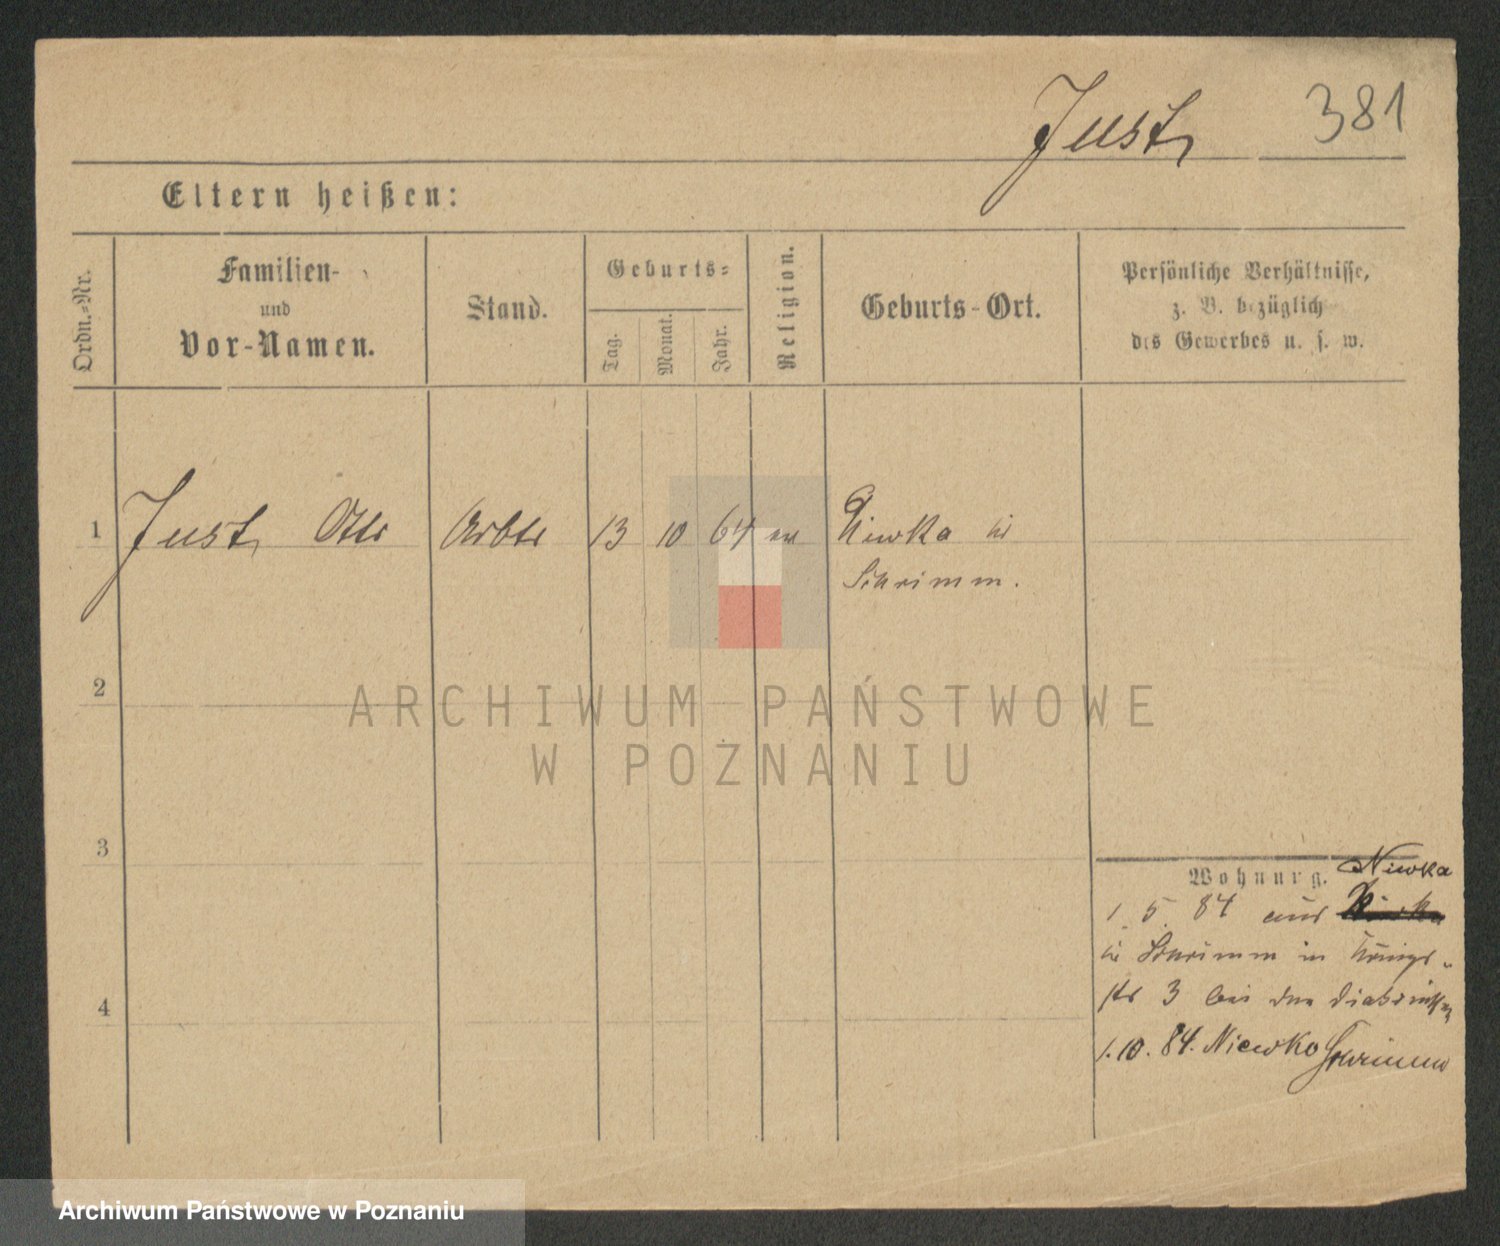 Just 381
Eltern heißen:
Ordn.-Nr.
Familien-
und
Vor-Namen.
Stand.
Geburts-
Tag.
Monat.
Jahr.
Religion.
Geburts-Ort.
Persönliche Verhältnisse,
z. B. bezüglich
des Gewerbes u. s. w.
1 Just Otto Arbtr 13 10 64 ev Niewka in
Schrimm.
2
ARCHIWUM PAŃSTWOWE
W POZNANIU
3
Wohnung. Niewka
1. 5. 84 aus
in Schrimm in Königs-
str 3 bei den
4
1. 10. 84. Niewko Schrimm
Archiwum Państwowe w Poznaniu